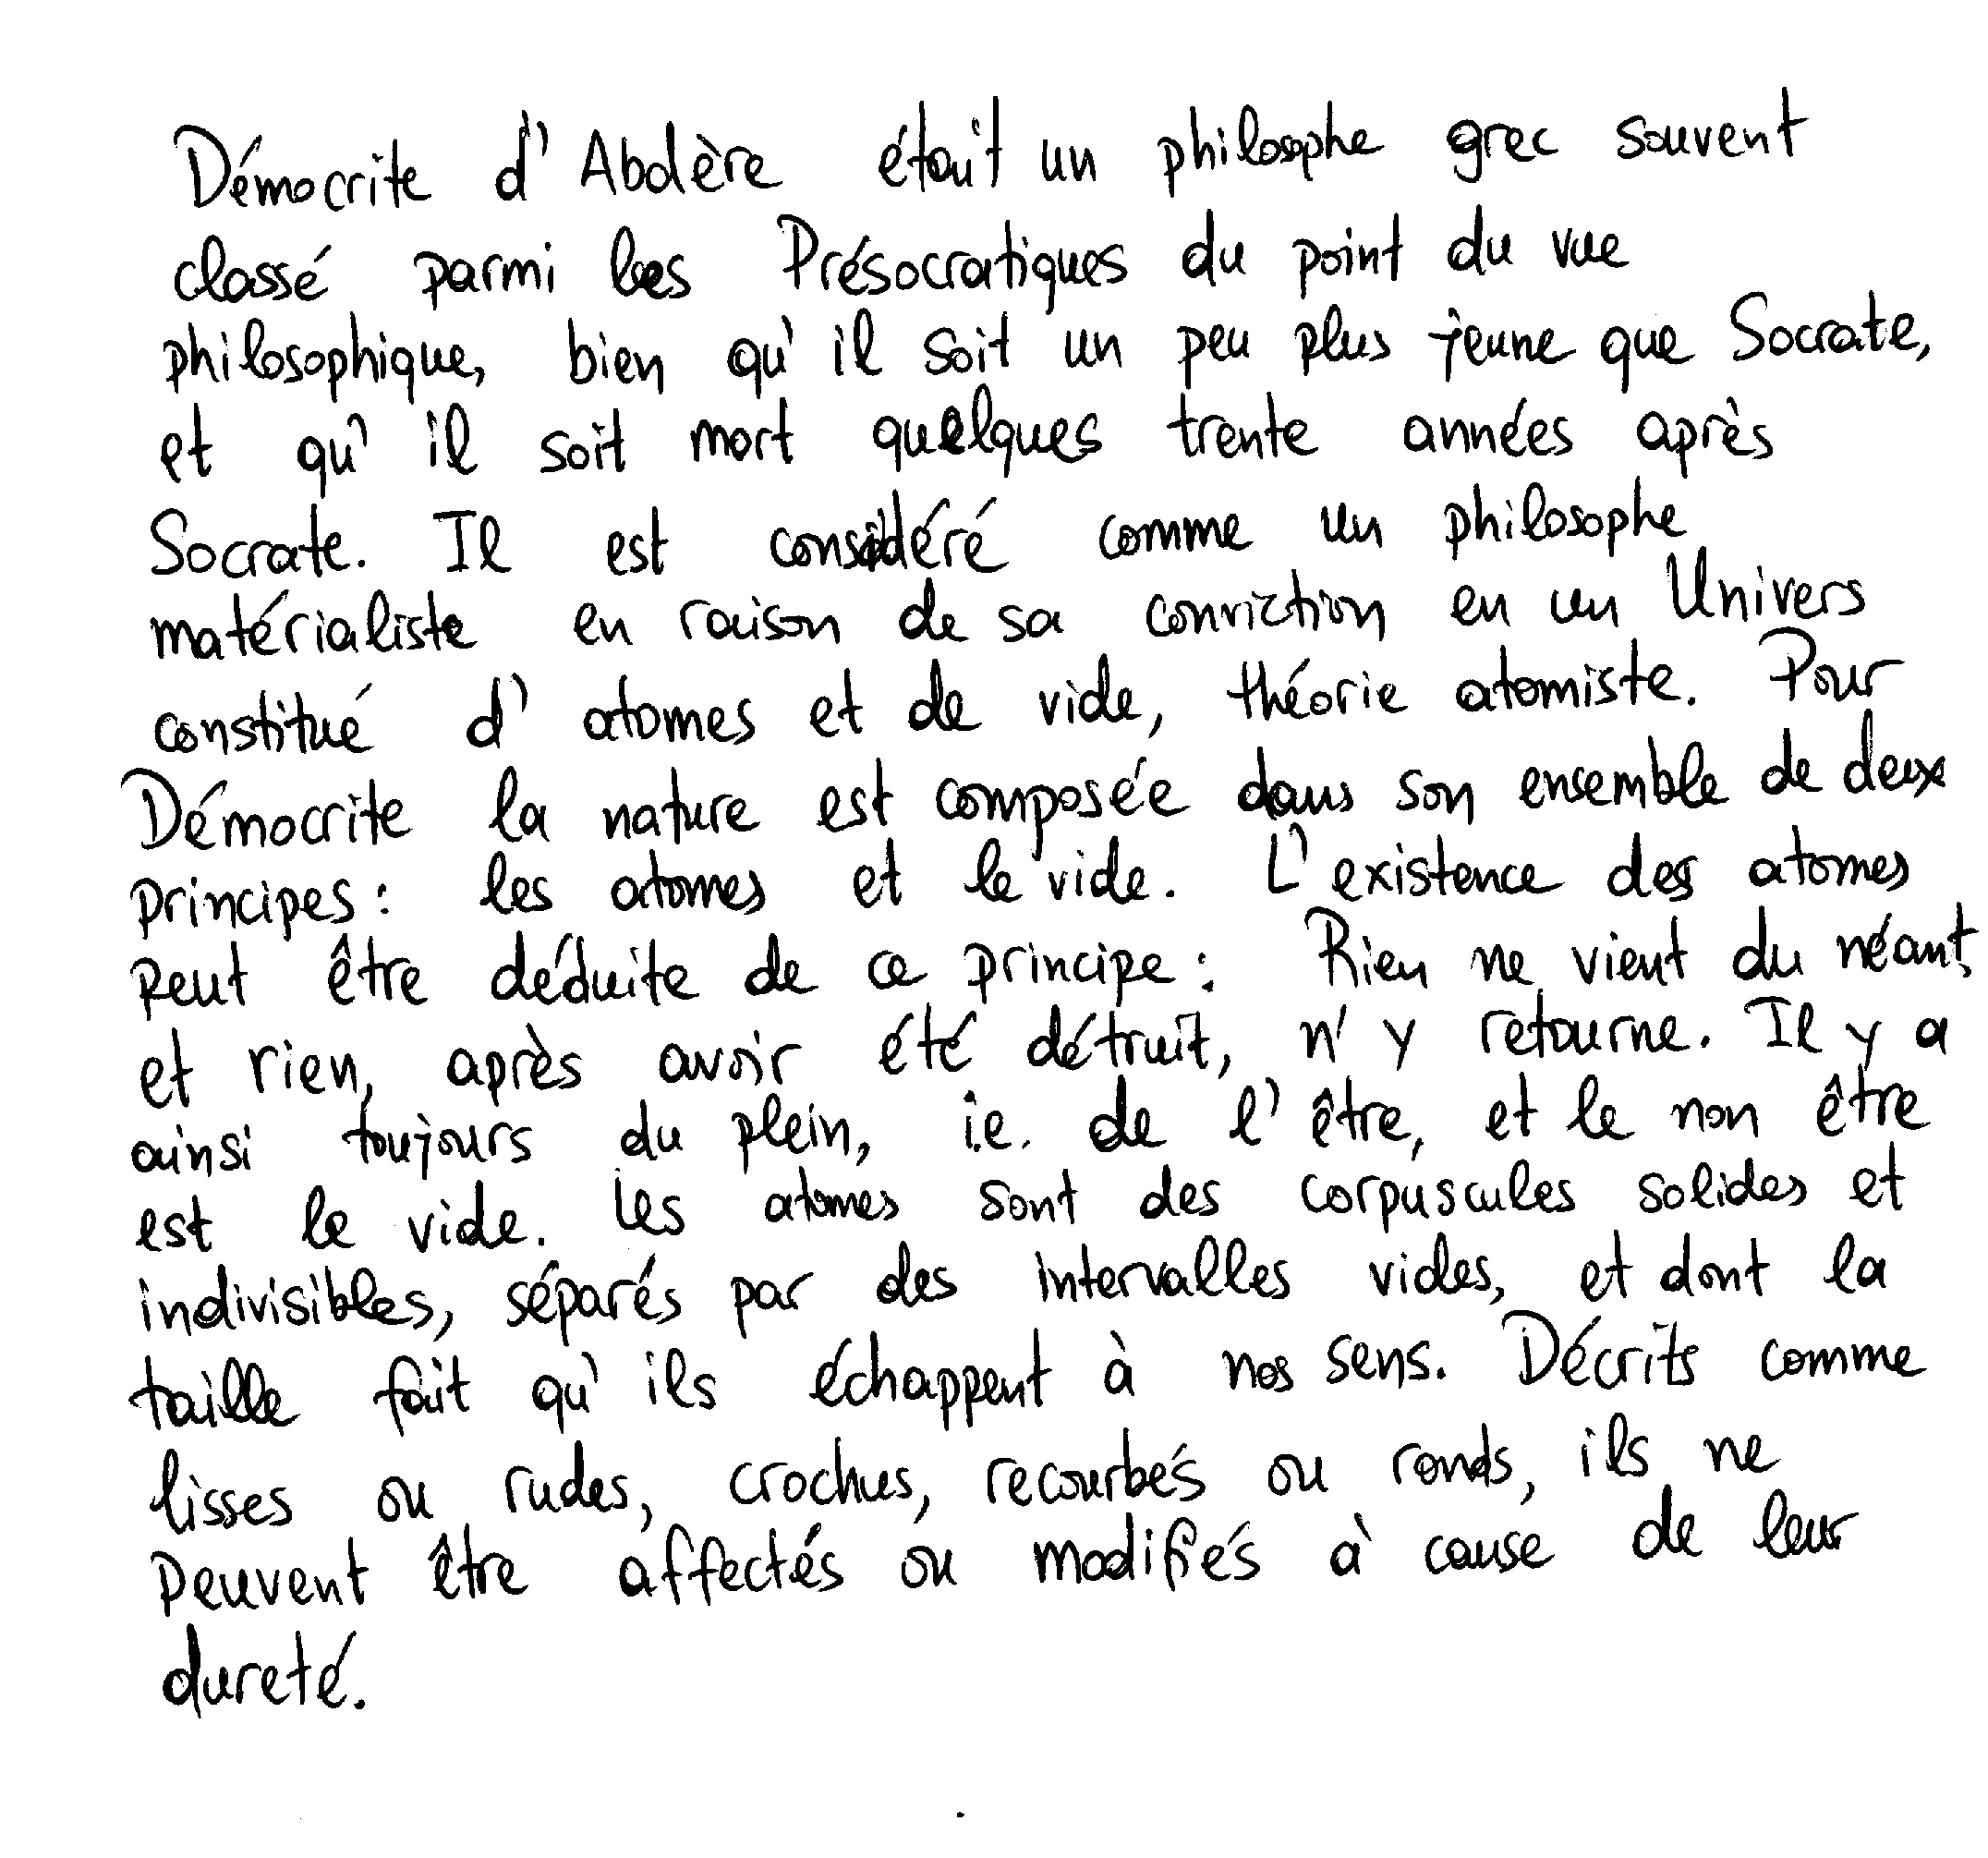 Démocrite d'Abdère était un philosophe grec souvent
classé parmi les Présocratiques du point du vue
philosophique, bien qu'il soit un peu plus jeune que Socrate,
et qu'il soit mort quelques trente années après
Socrate. Il est considéré comme un philosophe
matérialiste en raison de sa conviction en un Univers
constitué d'atomes et de vide, théorie atomiste. Pour
Démocrite la nature est composée dans son ensemble de deux
principes: les atomes et le vide. L'existence des atomes
peut être déduite de ce principe: Rien ne vient du néant,
et rien, après avoir été détruit, n'y retourne. Il y a
ainsi toujours du plein, i.e. de l'être, et le non être
est le vide. Les atomes sont des corpuscules solides et
indivisibles, séparés par des intervalles vides, et dont la
taille fait qu'ils échappent à nos sens. Décrits comme
lisses ou rudes, crochus, recourbés ou ronds, ils ne
peuvent être affectés ou modifiés à cause de leur
dureté.